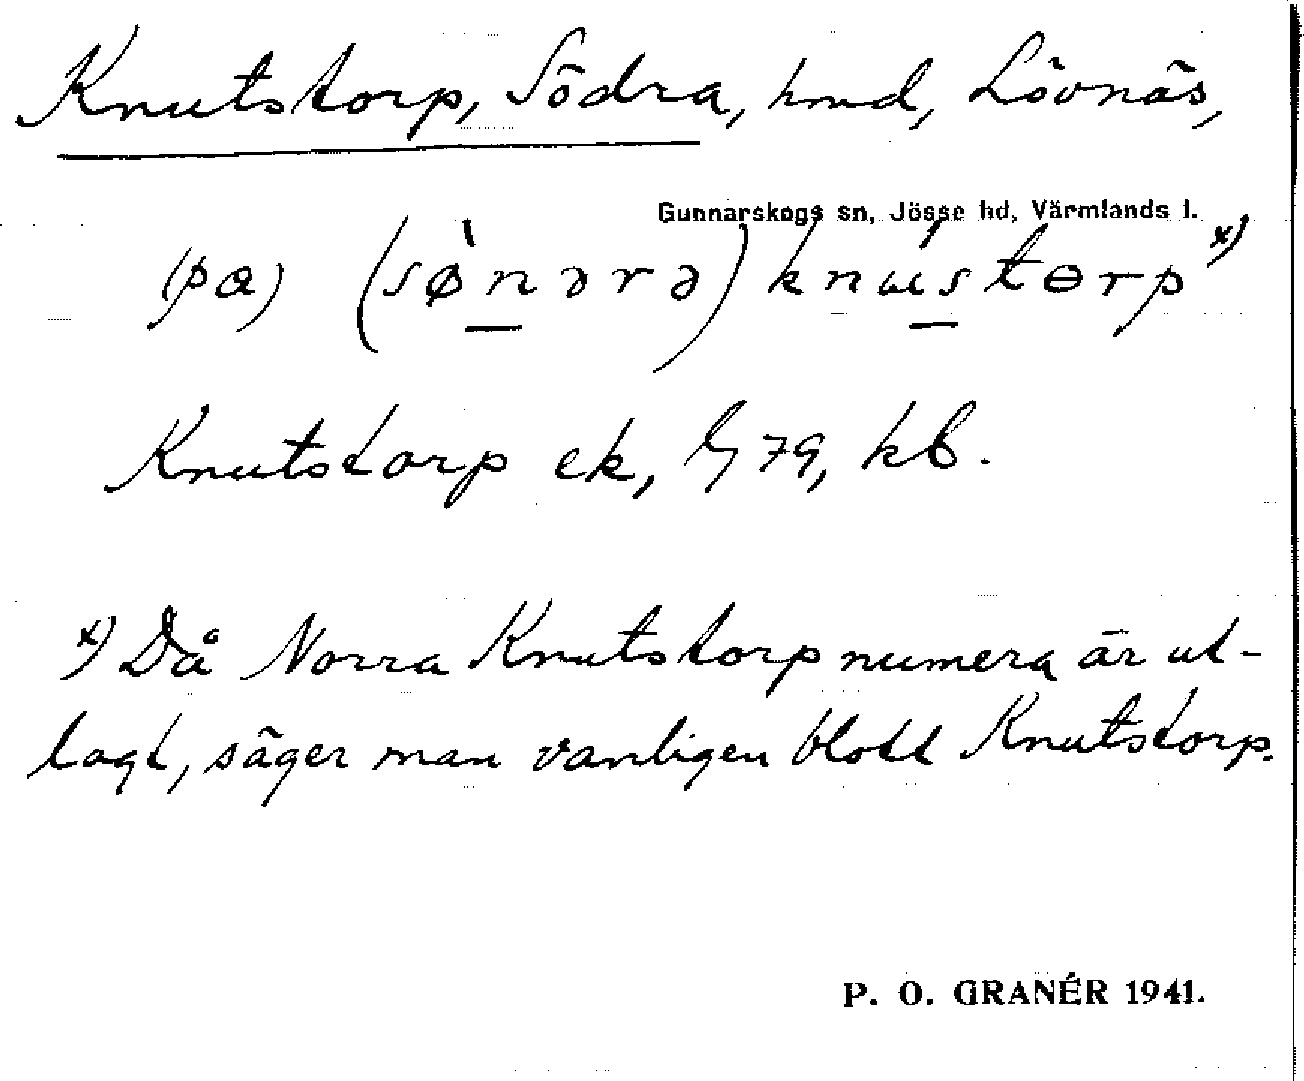 Knutstorp, Södra, hmd, Lövnäs,
Gunnarskogs sn, Jösse hd, Värmlands l.
(pa) (sø̀nərə) knústɵrp x)
Knutstorp ek, G 79, kb.
x) Då Norra Knutstorp numera är ut-
lagt, säger man vanligen blott Knutstorp.
P. O. GRANÉR 1941.